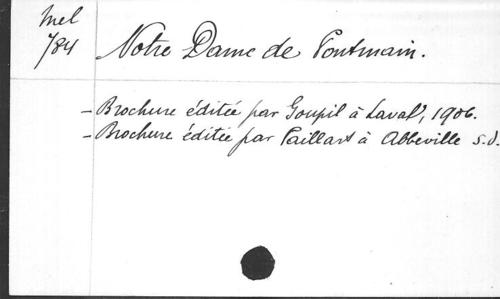 Mel
784
Notre Dame de Pontmain.
- Brochure éditée par Goupil à Laval, 1906.
- Brochure éditée par Paillart à Abbeville s.d.